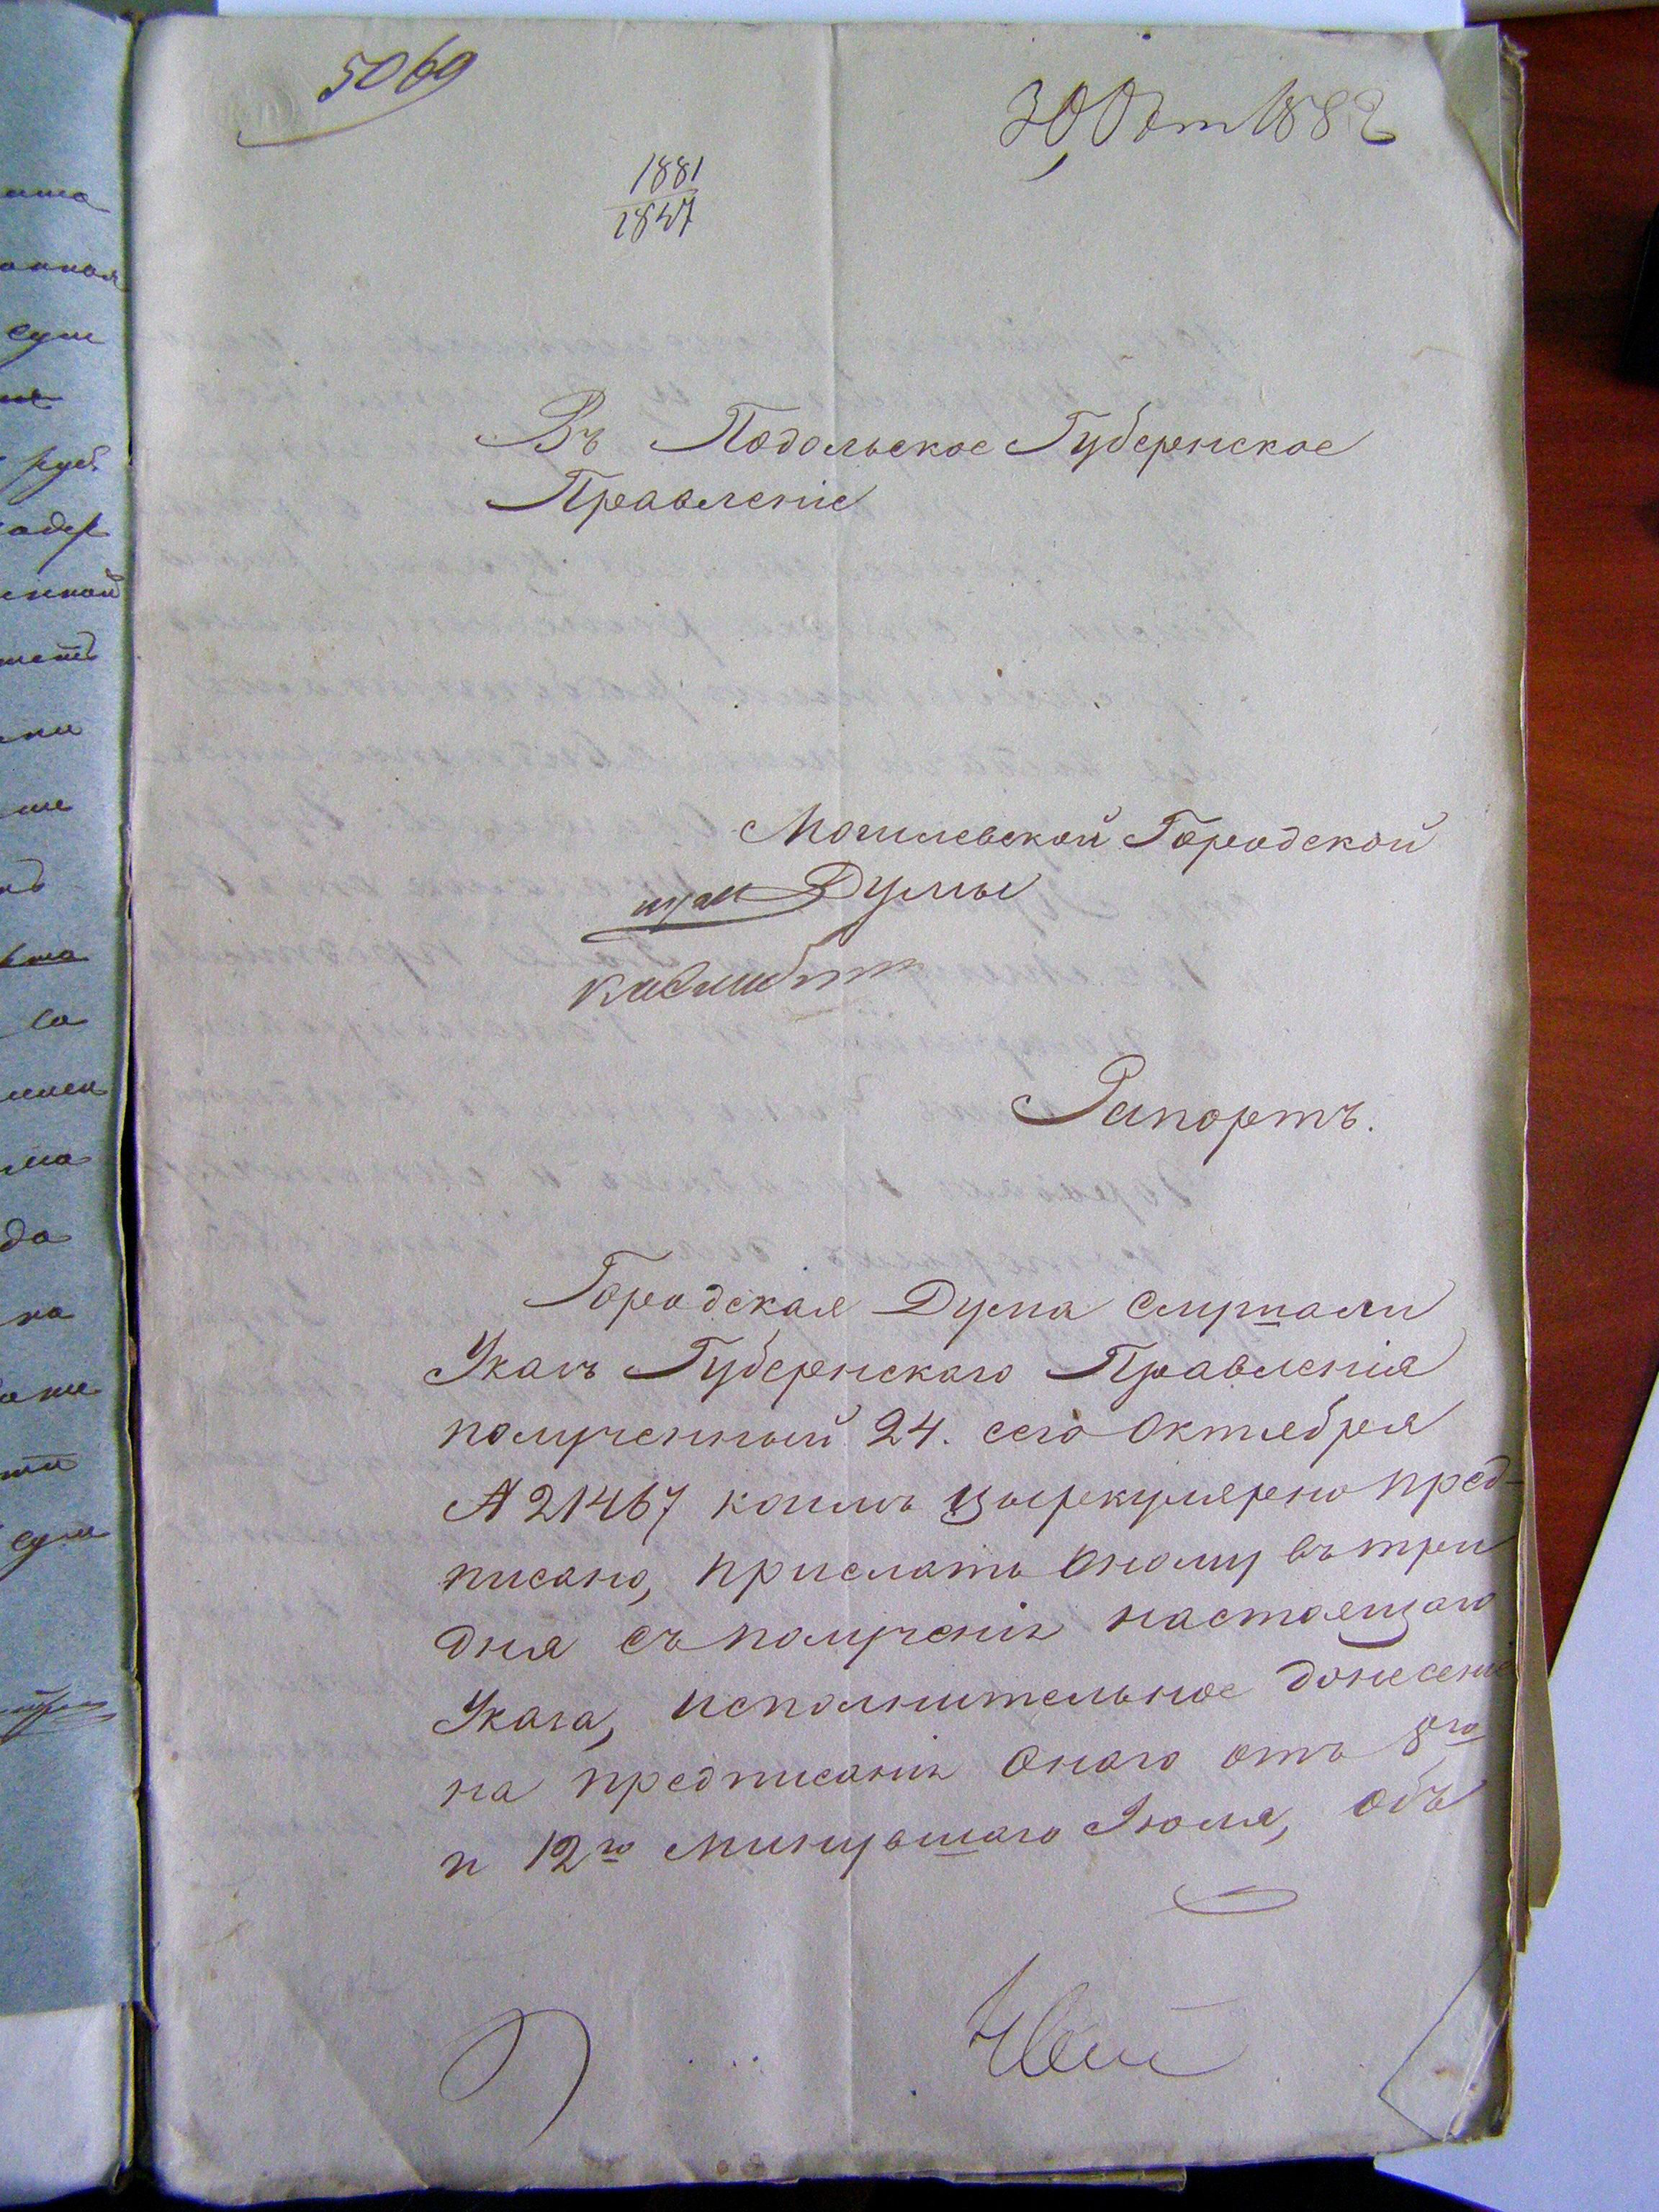 5069
30 Окт 1882
1881
1847
Въ Подольское Губернское
Правленіе
Могилевской Городской
Думы
Рапортъ.
Городская Дума слушали
Указъ Губернскаго Правленія
полученный 24. сего Октября
№ 21467 коимъ цыркулярно пред-
писано, прислать оному въ три
дня съ полученія настоящаго
Указа, исполнительное донесеніе
на предписанія онаго отъ 8го
и 12го минувшаго Іюля, объ